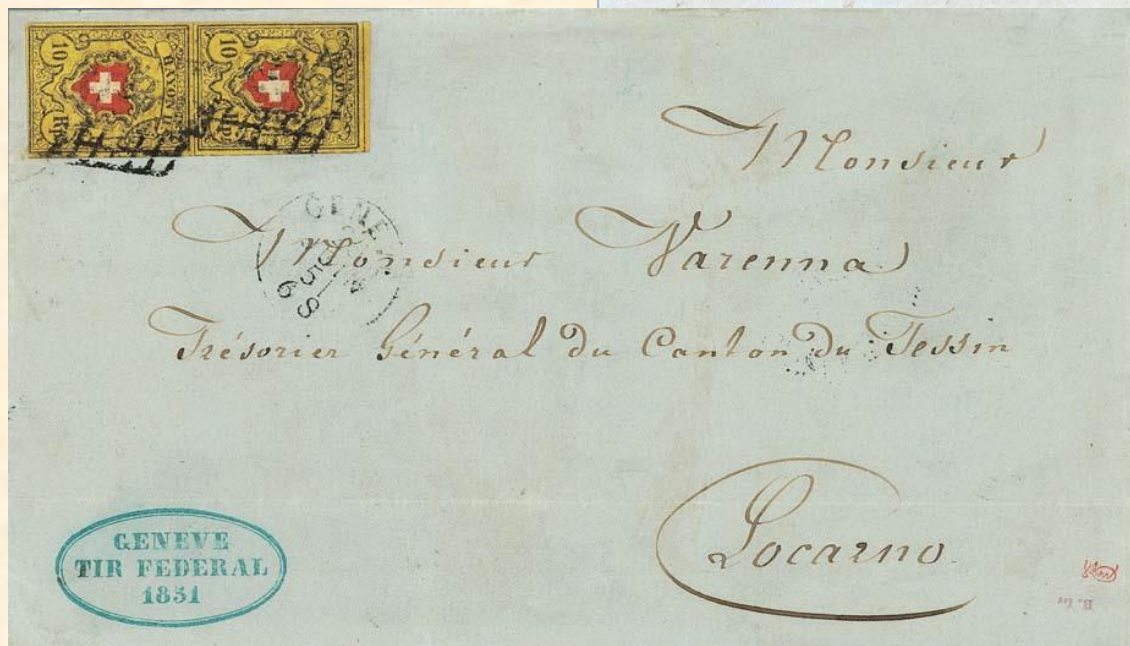 10 RAYON II
10 RAYON II
Rp.
GENEV
Monsieur
Monsieur Varenna
Trésorier Général du Canton du Tessin
Locarno
GENEVE
TIR FEDERAL
1851